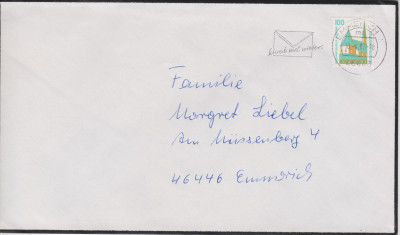 100
Schreib mal wieder
Familie
Margret Liebel
Am Müssenberg 4
46446 Emmerich